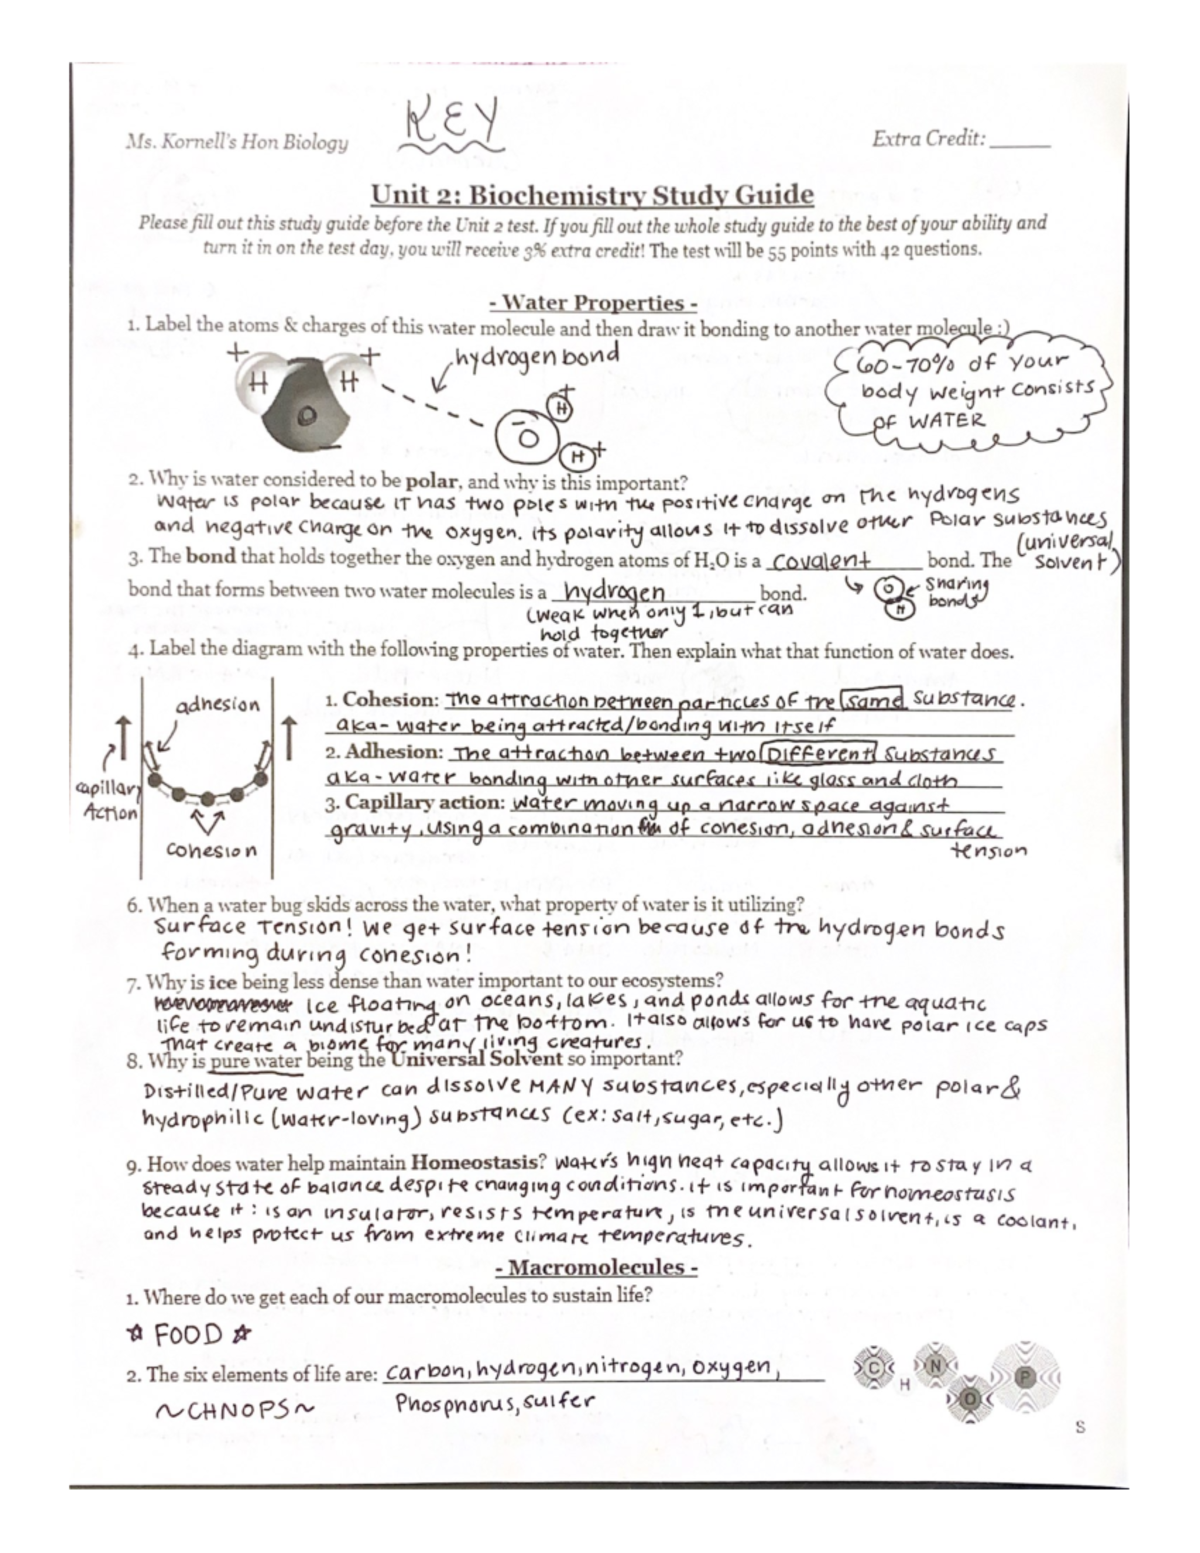 KEY
Ms. Kornell's Hon Biology
Extra Credit: ______
Unit 2: Biochemistry Study Guide
Please fill out this study guide before the Unit 2 test. If you fill out the whole study guide to the best of your ability and
turn it in on the test day, you will receive 3% extra credit! The test will be 55 points with 42 questions.
- Water Properties -
1. Label the atoms & charges of this water molecule and then draw it bonding to another water molecule :)
+ H + H O −
hydrogen bond
− O H + H +
60-70% of your
body weight consists
of WATER
2. Why is water considered to be polar, and why is this important?
Water is polar because it has two poles with the positive charge on the hydrogens
and negative charge on the oxygen. its polarity allows it to dissolve other Polar substances
(universal
solvent)
3. The bond that holds together the oxygen and hydrogen atoms of H₂O is a covalent bond. The
bond that forms between two water molecules is a hydrogen bond.
O H
Sharing
bonds
(weak when only 1, but can
hold together
4. Label the diagram with the following properties of water. Then explain what that function of water does.
adhesion
capillary
Action
cohesion
1. Cohesion: The attraction between particles of the same substance.
aka- water being attracted/bonding with itself
2. Adhesion: The attraction between two DIFFERENT substances
aka- water bonding with other surfaces like glass and cloth
3. Capillary action: water moving up a narrow space against
gravity, using a combination of cohesion, adhesion & surface
tension
6. When a water bug skids across the water, what property of water is it utilizing?
Surface Tension! We get surface tension because of the hydrogen bonds
forming during cohesion!
7. Why is ice being less dense than water important to our ecosystems?
Ice floating on oceans, lakes, and ponds allows for the aquatic
life to remain undisturbed at the bottom. It also allows for us to have polar ice caps
that create a biome for many living creatures.
8. Why is pure water being the Universal Solvent so important?
Distilled/Pure water can dissolve MANY substances, especially other polar &
hydrophilic (water-loving) substances (ex: salt, sugar, etc.)
9. How does water help maintain Homeostasis? Water's high heat capacity allows it to stay in a
steady state of balance despite changing conditions. it is important for homeostasis
because it: is an insulator, resists temperature, is the universal solvent, is a coolant,
and helps protect us from extreme climate temperatures.
- Macromolecules -
1. Where do we get each of our macromolecules to sustain life?
☆ FOOD ☆
2. The six elements of life are: carbon, hydrogen, nitrogen, oxygen,
~CHNOPS~ Phosphorus, sulfer
C H N O P S